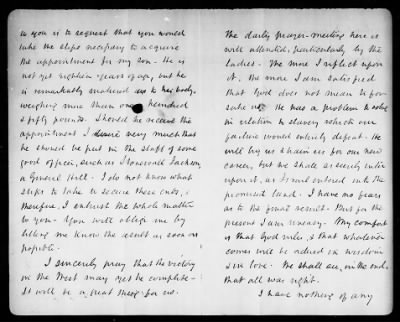 to you is to request that you would
take the steps necessary to secure
the appointment for my son. He is
not yet eighteen years of age, but he
is remarkably matured as to his body,
weighing more than one hundred
& fifty pounds. Should he receive the
appointment I desire very much that
he should be put in the staff of some
good officer, such as Stonewall Jackson,
or General Hill. I do not know what
steps to take to secure these ends, &
therefore, I entrust the whole matter
to you. You will oblige me by
letting me know the result as soon as
possible.
I sincerely pray that the victory
in the West may yet be complete.
It will be a great thing for us.
The daily prayer-meeting here is
well attended, particularly by the
ladies. The more I reflect upon
it, the more I am satisfied
that God does not mean to for-
sake us. He has a problem to solve
in relation to slavery which our
failure would utterly defeat. He
will try us & chasten us for our new
career, but we shall as surely enter
upon it, as Israel entered into the
promised land. I have no fears
as to the final result. But for the
present I am uneasy. My comfort
is that God rules, & that whatever
comes will be ordered in wisdom
& in love. We shall see, in the end,
that all was right.
I have nothing of any